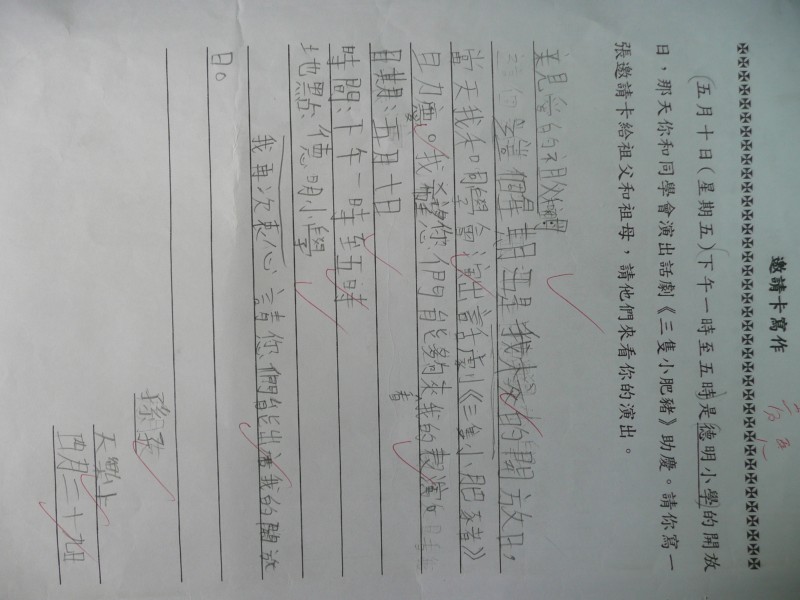 邀請卡寫作
五月十日(星期五)下午一時至五時是德明小學的開放
日,那天你和同學會演出話劇《三隻小肥豬》助慶。請你寫一
張邀請卡給祖父和祖母,請他們來看你的演出。
親愛的祖父
這個星期五是我學校的開放日,
當天我和同學會演出話劇《三隻小肥豬》
我希望您們能夠來看我的表演
日期:五月十日
時間:下午一時至五時
地點:德明小學
我再次衷心請您們能出席我的開放
日。
孫子
天樂上
四月二十九日